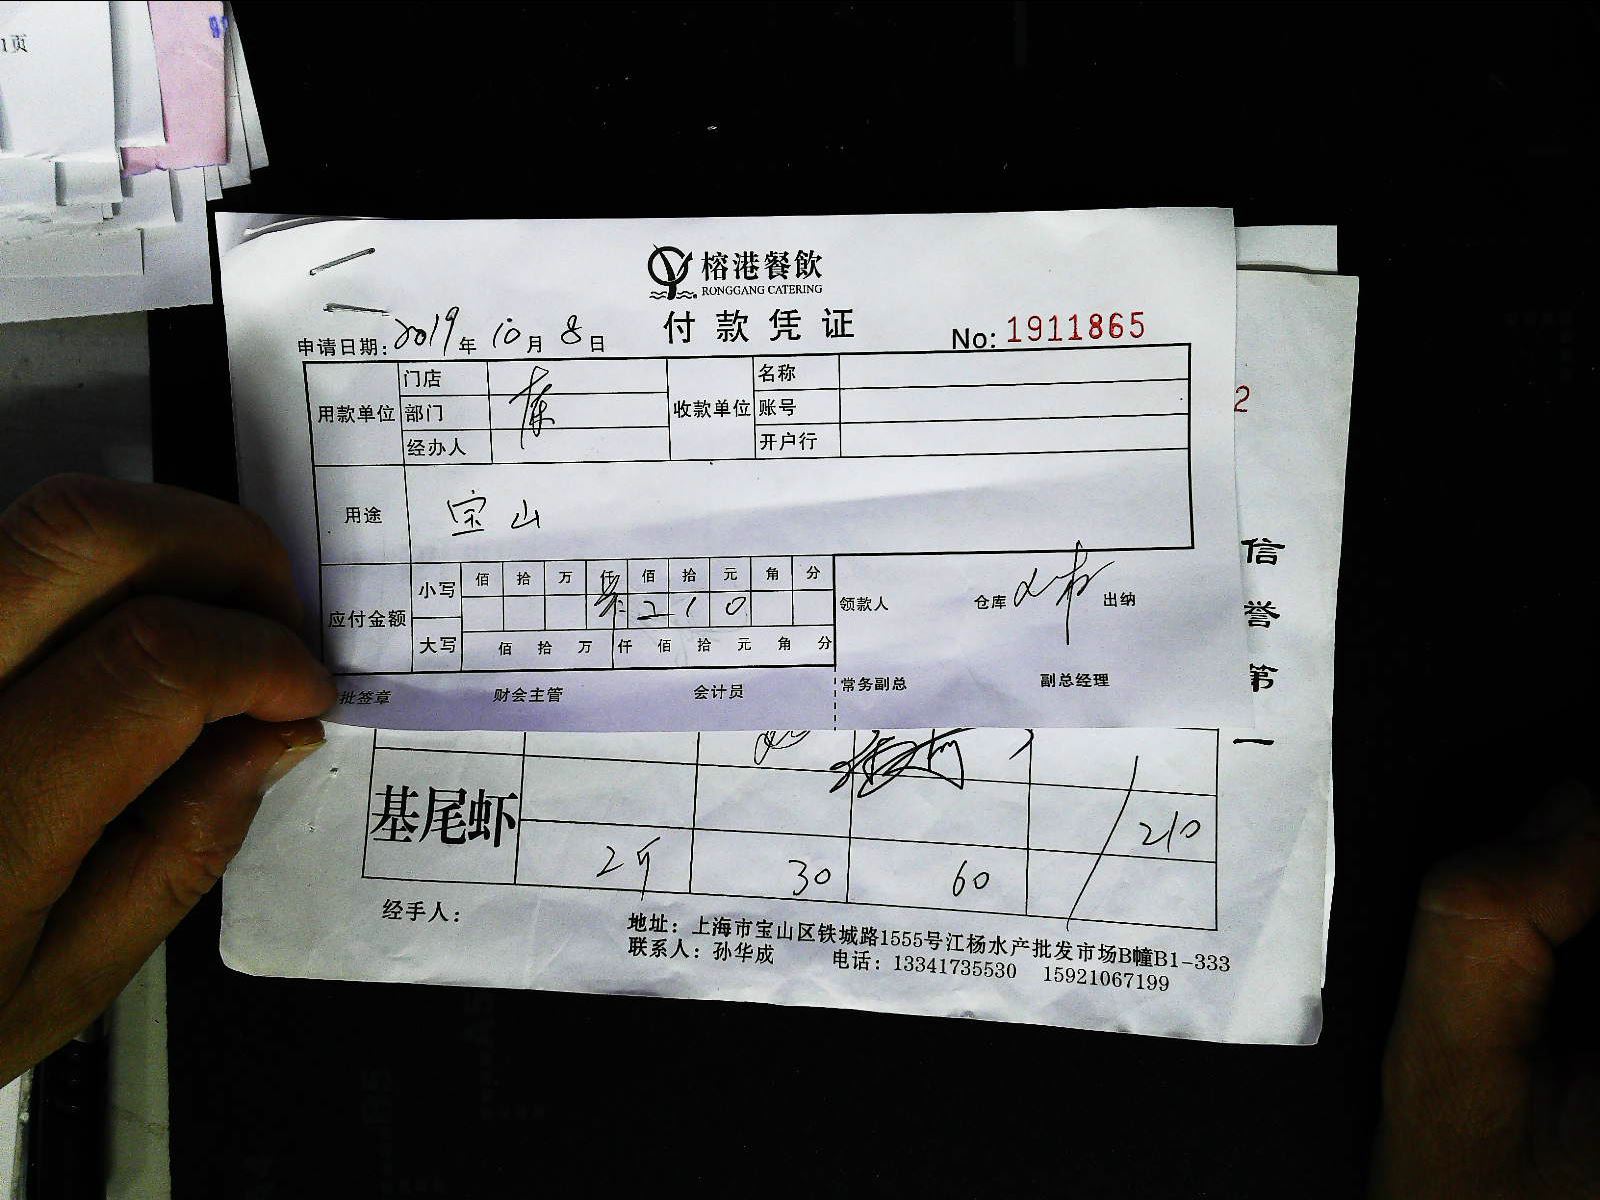 1页
榕港餐飲
RONGGANG CATERING
付款凭证
申请日期: 2019年 10月 8日
No: 1911865
用款单位 门店 收款单位 名称
部门 账号
经办人 开户行
2
用途 宝山
应付金额 小写 佰 拾 万 仟 佰 拾 元 角 分
2 1 0
大写 佰 拾 万 仟 佰 拾 元 角 分
领款人 仓库 出纳
批签章 财会主管 会计员 常务副总 副总经理
信誉第一
基尾虾
210
2斤 30 60
经手人:
地址: 上海市宝山区铁城路1555号江杨水产批发市场B幢B1-333
联系人: 孙华成 电话: 13341735530 15921067199